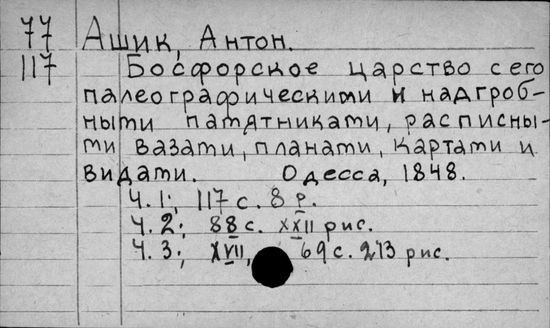 77 Ашик, Антон.
117 Босфорское царство с его
палеографическими и надгроб-
ными памятниками, расписны-
ми вазами, планами, картами и
видами. Одесса, 1848.
Ч. 1:, 117 с. 8 р.
Ч. 2:, 88 с. XXII рис.
Ч. 3:, XVII, 69 с. 213 рис.